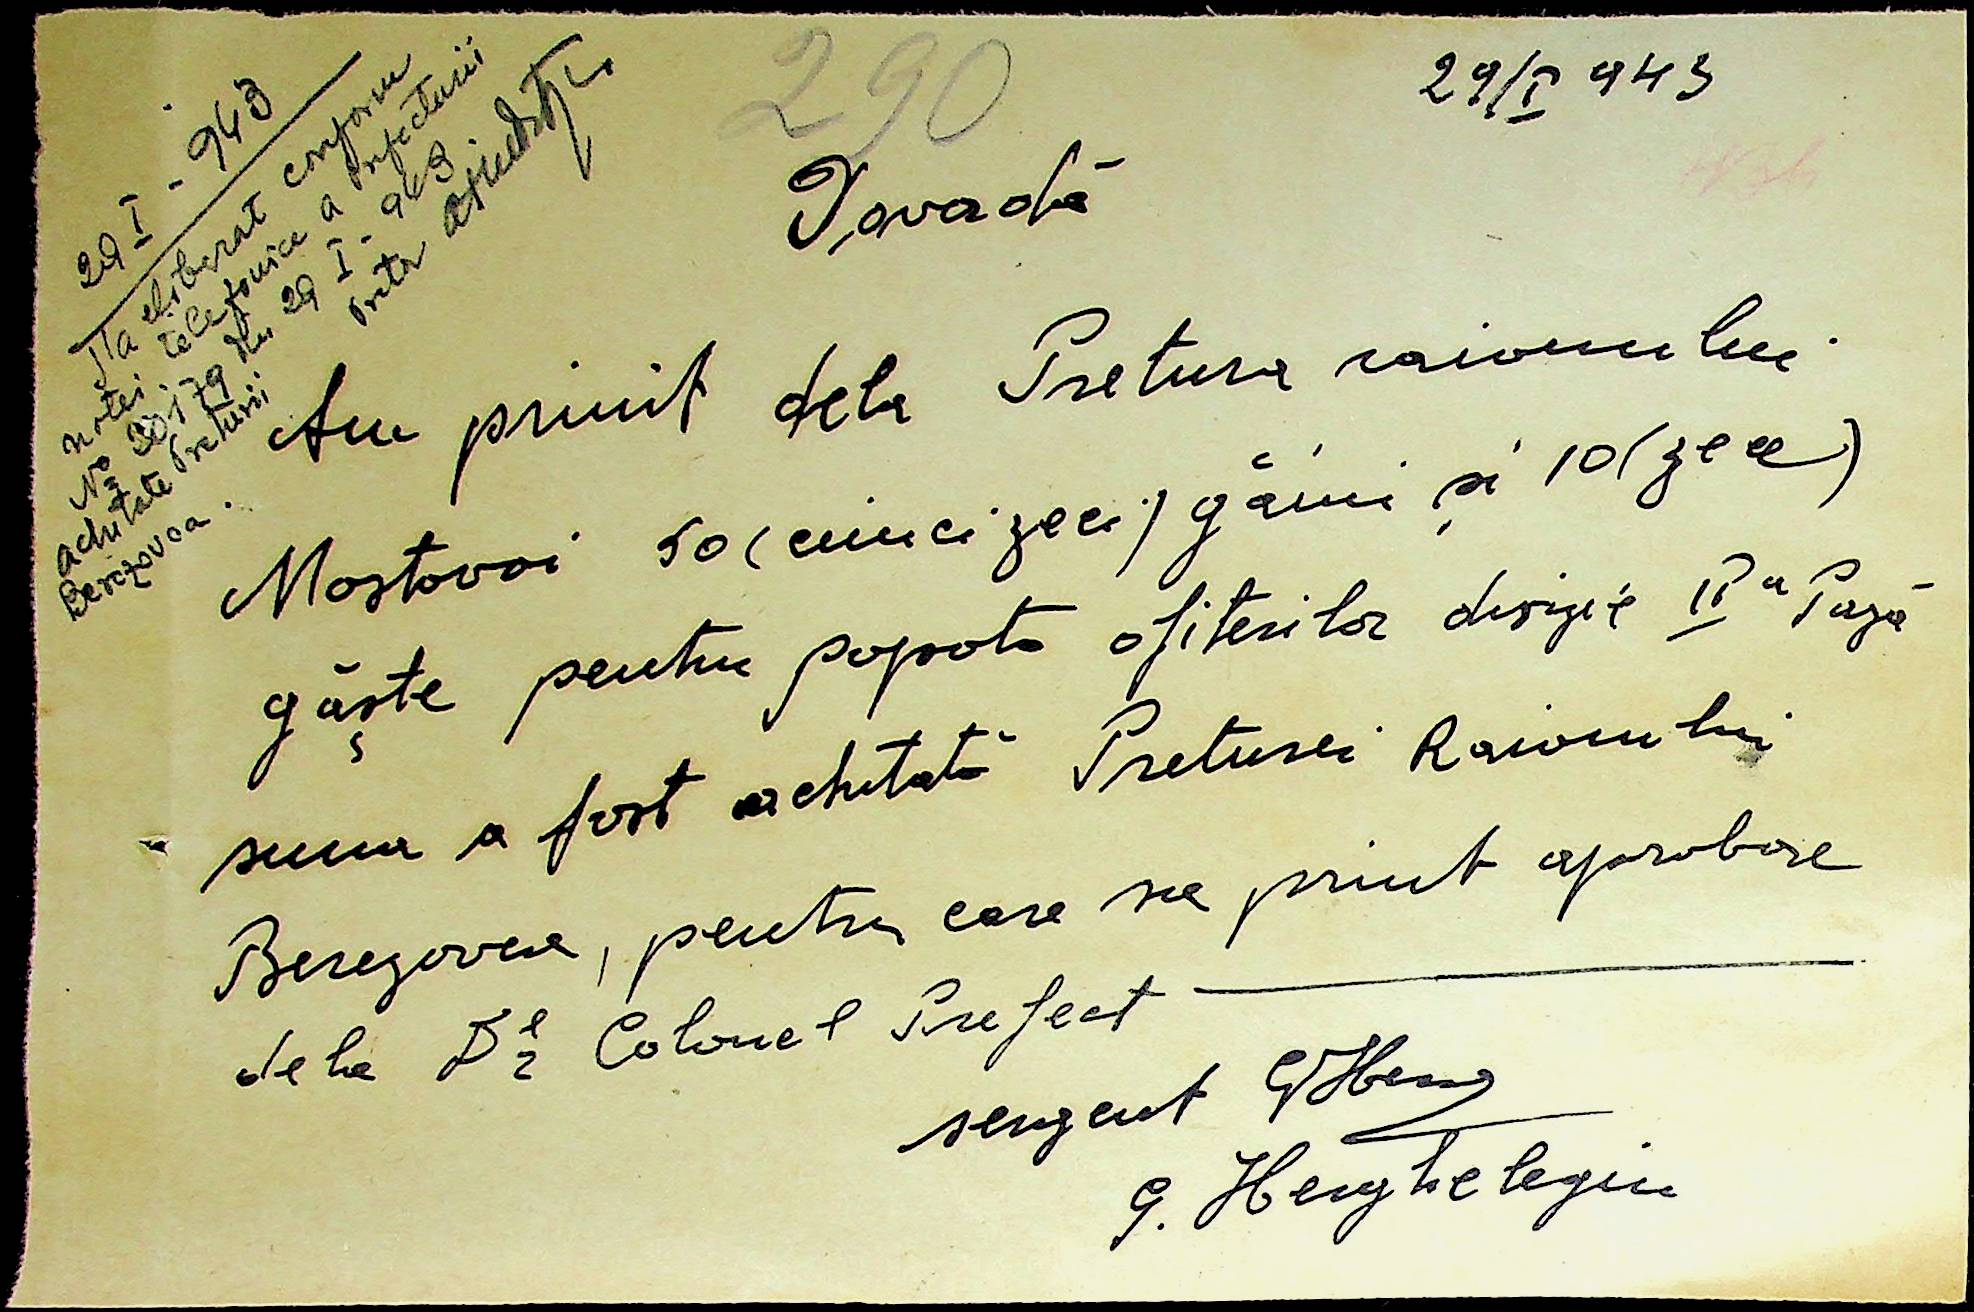 290
29/I 943
29 I - 943
S'a eliberat conform
notei telefonice a Prefecturii
No 20179 din 29 I - 943
achitate Preturii Pretor
Berezovca.
Dovadă
Am primit dela Pretura raionului
Mostovoi 50 (cinci zeci) găini și 10 (zece)
gâște pentru popota ofiterilor divizie II a Pază
suma a fost achitată Preturei Raionului
Berezovca, pentru care sa primit aprobare
dela Dl Colonel Prefect
sergent GHerg
G. Herghelegiu